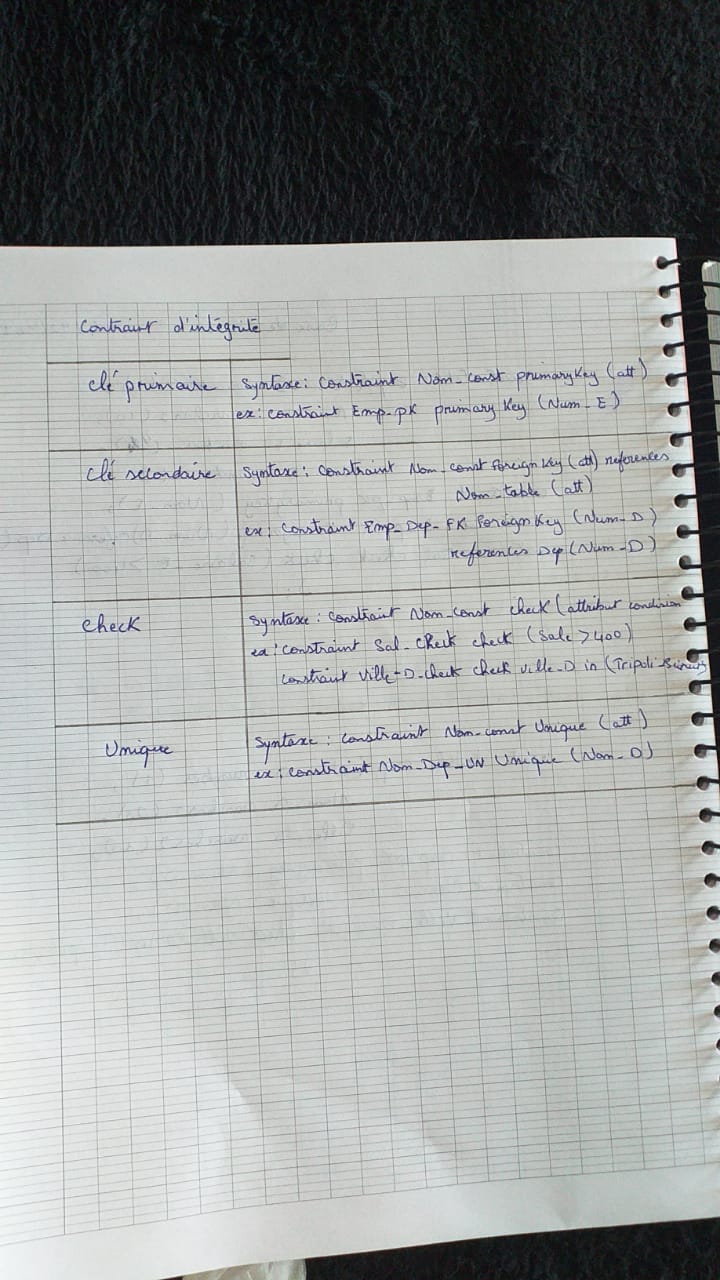 Contraint d'intégrité
clé primaire
Syntaxe : Constraint Nom_const primaryKey (att)
ex : constraint Emp_pk primary Key (Num_E)
clé secondaire
Syntaxe : Constraint Nom_const foreign key (att) references
Nom_table (att)
ex : constraint Emp_Dep_FK Foreign Key (Num_D)
references Dep (Num_D)
check
Syntaxe : constraint Nom_const check (attribut condition
ex : constraint Sal_check check (Sale > 400)
constraint Ville_D_check check ville_D in (Tripoli
Unique
Syntaxe : constraint Nom_const Unique (att)
ex : constraint Nom_Dep_UN Unique (Nom_D)